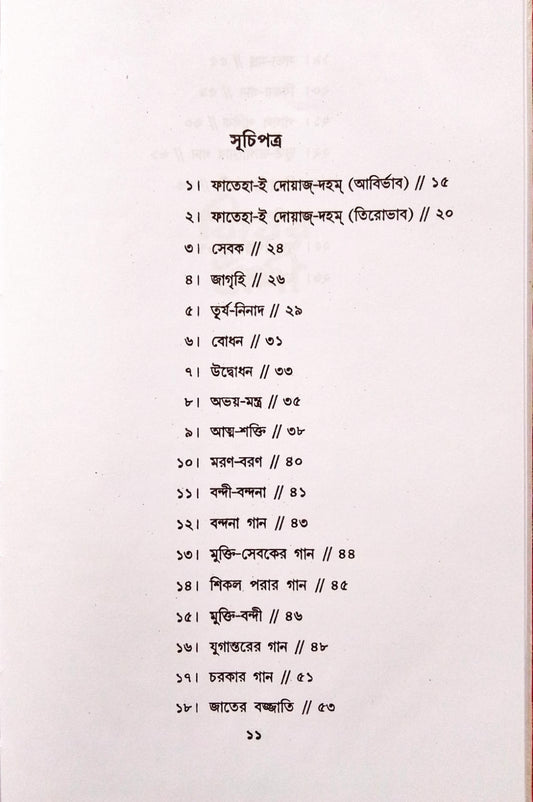 সূচিপত্র
১। ফাতেহা-ই দোয়াজ্-দহম্ (আবির্ভাব) // ১৫
২। ফাতেহা-ই দোয়াজ্-দহম্ (তিরোভাব) // ২০
৩। সেবক // ২৪
৪। জাগৃহি // ২৬
৫। তূর্য-নিনাদ // ২৯
৬। বোধন // ৩১
৭। উদ্বোধন // ৩৩
৮। অভয়-মন্ত্র // ৩৫
৯। আত্ম-শক্তি // ৩৮
১০। মরণ-বরণ // ৪০
১১। বন্দী-বন্দনা // ৪১
১২। বন্দনা গান // ৪৩
১৩। মুক্তি-সেবকের গান // ৪৪
১৪। শিকল পরার গান // ৪৫
১৫। মুক্তি-বন্দী // ৪৬
১৬। যুগান্তরের গান // ৪৮
১৭। চরকার গান // ৫১
১৮। জাতের বজ্জাতি // ৫৩
১১